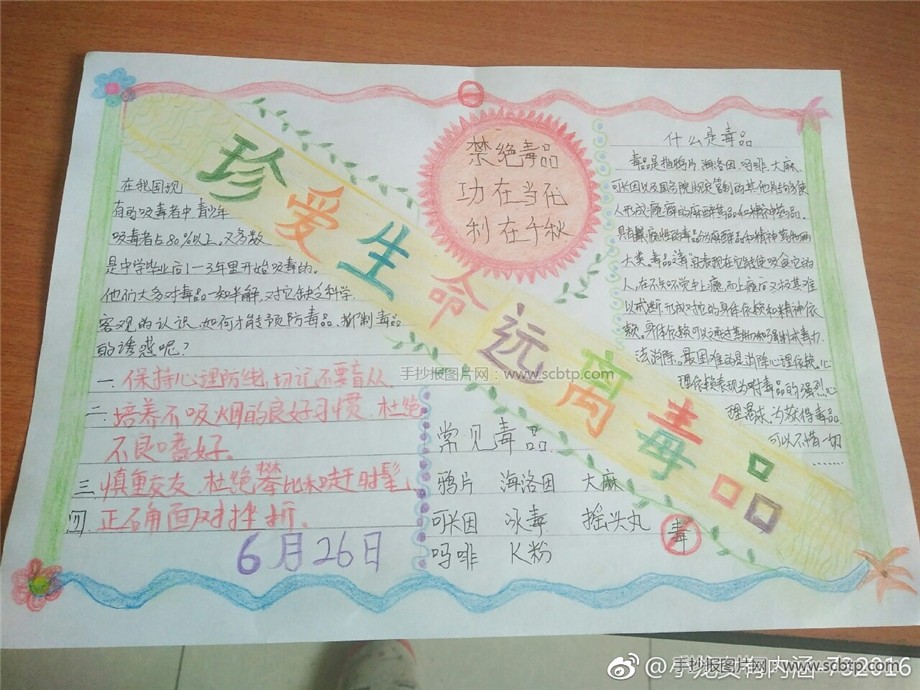 珍爱生命远离毒品
禁绝毒品
功在当代
利在千秋
在我国现
有的吸毒者中青少年
吸毒者占80%以上,又多数
是中学毕业后1-3年里开始吸毒的。
他们大多对毒品一知半解,对它缺乏科学,
客观的认识。如何才能预防毒品,抑制毒品
的诱惑呢?
一.保持心理防线,切记不要盲从.
二.培养不吸烟的良好习惯,杜绝
不良嗜好。
三.慎重交友,杜绝攀比和赶时髦
四.正确面对挫折.
6月26日
常见毒品
鸦片 海洛因 大麻
可卡因 冰毒 摇头丸
吗啡 K粉
毒
什么是毒品
毒品是指鸦片,海洛因,吗啡,大麻,
可卡因以及国务院规定管制的其他具能够使
人形成瘾癖的麻醉药品和精神药品。
大类。
赖。
理依赖表现为对毒品的强烈心
理渴求,为获得毒品
可以不惜一切
........
手抄报图片网:www.scbtp.com
手抄报图片网:www.scbtp.com